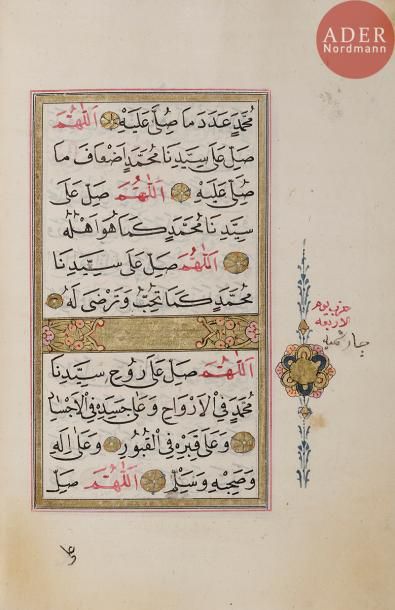 ADER
Nordmann
مُحَمَّدٍ عَدَدَ مَا صُلِّيَ عَلَيْهِ اَللّٰهُمَّ
صَلِّ عَلٰى سَيِّدِنَا مُحَمَّدٍ اَضْعَافَ مَا
صُلِّيَ عَلَيْهِ اَللّٰهُمَّ صَلِّ عَلٰى
سَيِّدِنَا مُحَمَّدٍ كَمَا هُوَ اَهْلُهُ
اَللّٰهُمَّ صَلِّ عَلٰى سَيِّدِنَا
مُحَمَّدٍ كَمَا تُحِبُّ وَتَرْضٰى لَهُ
اَللّٰهُمَّ صَلِّ عَلٰى رُوحِ سَيِّدِنَا
مُحَمَّدٍ فِي الْاَرْوَاحِ وَعَلٰى جَسَدِهِ فِي الْاَجْسَادِ
وَعَلٰى قَبْرِهِ فِي الْقُبُورِ وَعَلٰى اٰلِهِ
وَصَحْبِهِ وَسَلِّمْ اَللّٰهُمَّ صَلِّ
حزب يوم
الاربعه